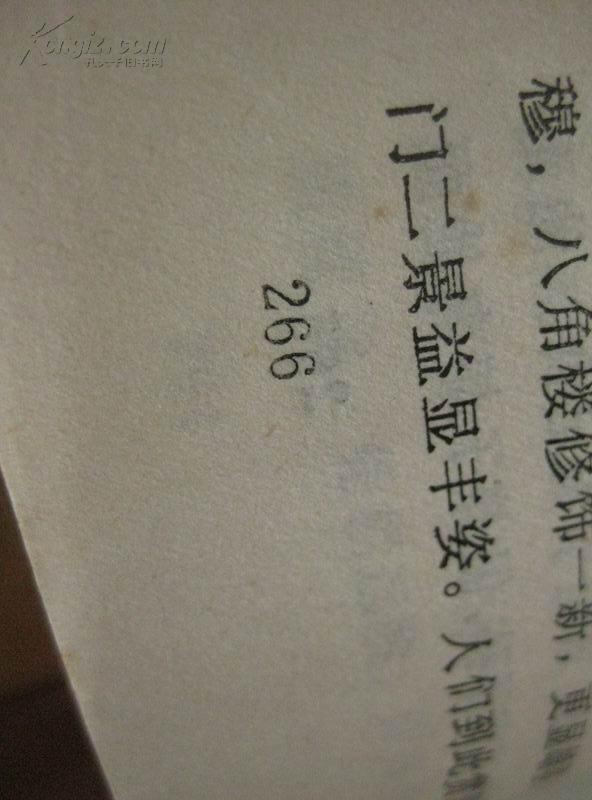 Kongfz.com
孔夫子旧书网
穆，八角楼修饰一新，更显
门二景益显丰姿。人们到此
266